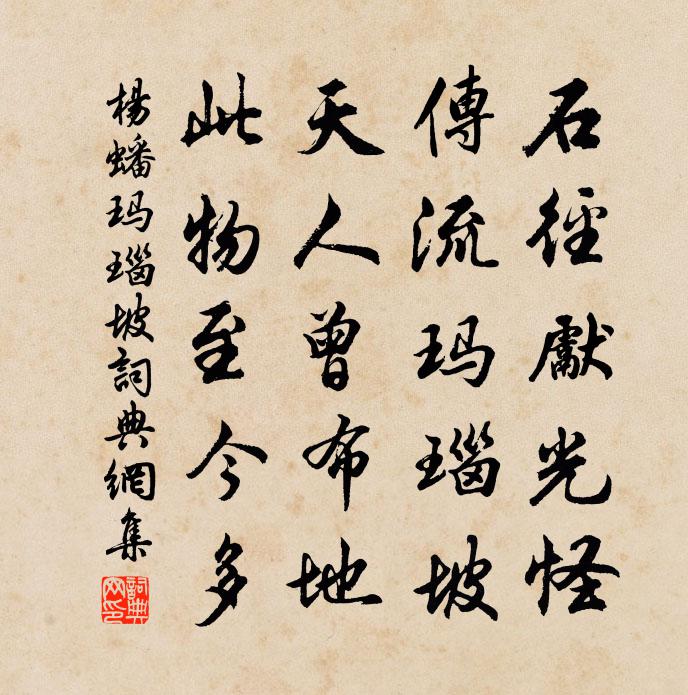 石徑獻光怪
傳流玛瑙坡
天人曾布地
此物至今多
楊蟠玛瑙坡詞典網集
詞典網印